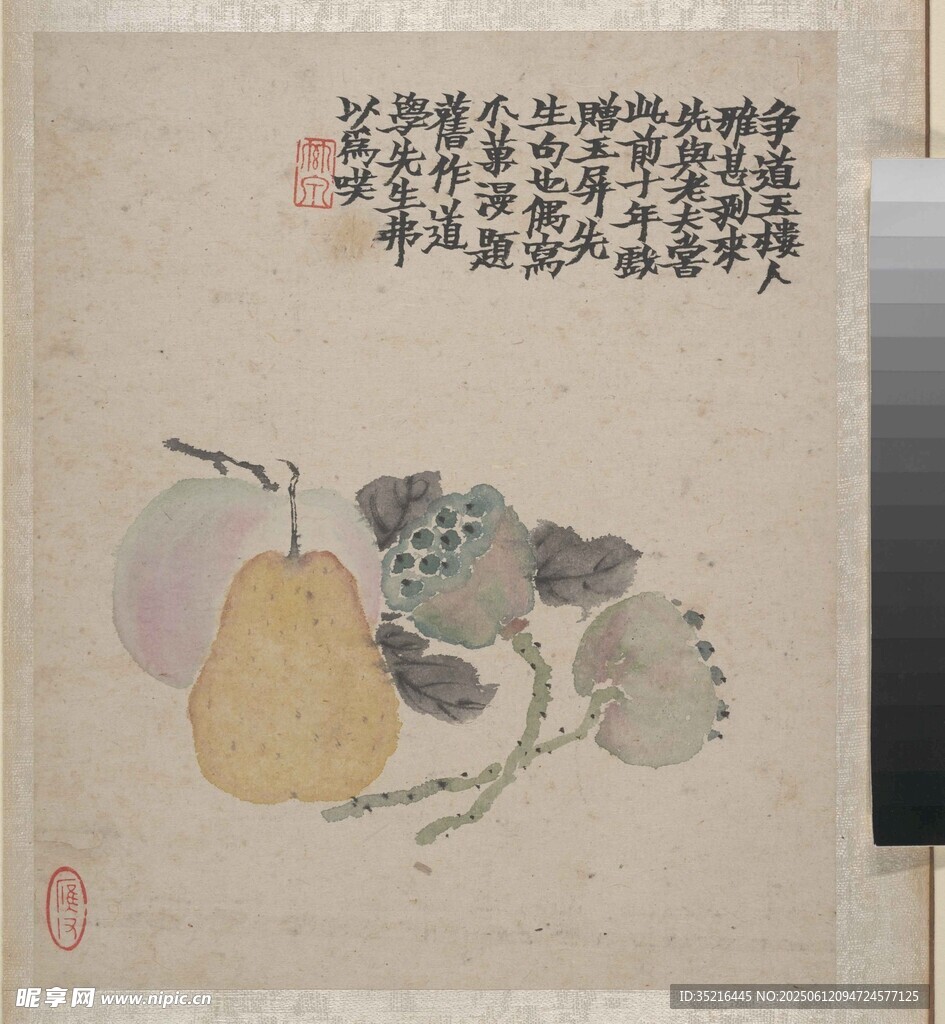 争道玉樓人
雅甚剥來
先與老夫嘗
此前十年戲
贈玉屏先
生句也偶寫
不菓漫題
舊作道
學先生弗
以為𠵽
昵享网 www.nipic.cn
ID:35216445 NO:20250612094724577125